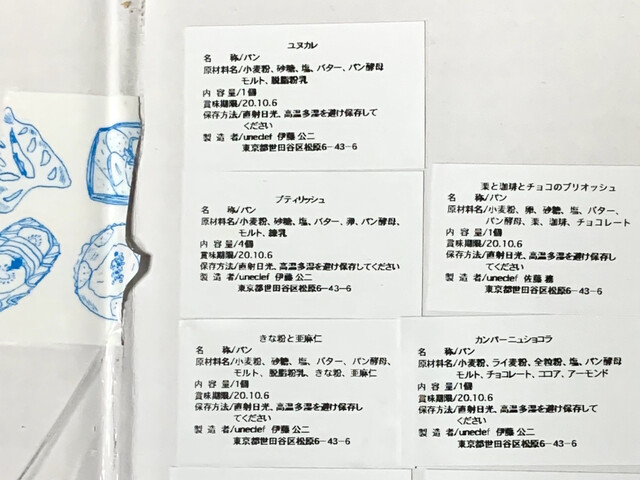 ユヌカレ
名 称/パン
原材料名/小麦粉、砂糖、塩、バター、パン酵母
モルト、脱脂粉乳
内 容 量/1個
賞味期限/20.10.6
保存方法/直射日光、高温多湿を避け保存して
ください
製 造 者/uneclef 伊藤 公二
東京都世田谷区松原6-43-6
プティリッシュ
名 称/パン
原材料名/小麦粉、砂糖、塩、バター、卵、パン酵母、
モルト、練乳
内 容 量/4個
賞味期限/20.10.6
保存方法/直射日光、高温多湿を避け保存してください
製 造 者/uneclef 伊藤 公二
東京都世田谷区松原6-43-6
栗と珈琲とチョコのブリオッシュ
名 称/パン
原材料名/小麦粉、卵、砂糖、塩、バター、
パン酵母、栗、珈琲、チョコレート
内 容 量/1個
賞味期限/20.10.6
保存方法/直射日光、高温多湿を避け保存し
てください
製 造 者/uneclef 佐藤
東京都世田谷区松原6-43-6
きな粉と亜麻仁
名 称/パン
原材料名/小麦粉、砂糖、塩、バター、パン酵母、
モルト、脱脂粉乳、きな粉、亜麻仁
内 容 量/1個
賞味期限/20.10.6
保存方法/直射日光、高温多湿を避け保存し
てください
製 造 者/uneclef 伊藤 公二
東京都世田谷区松原6-43-6
カンパーニュショコラ
名 称/パン
原材料名/小麦粉、ライ麦粉、全粒粉、塩、パン酵母
モルト、チョコレート、ココア、アーモンド
内 容 量/1個
賞味期限/20.10.6
保存方法/直射日光、高温多湿を避け保存し
てください
製 造 者/uneclef 伊藤 公二
東京都世田谷区松原6-43-6